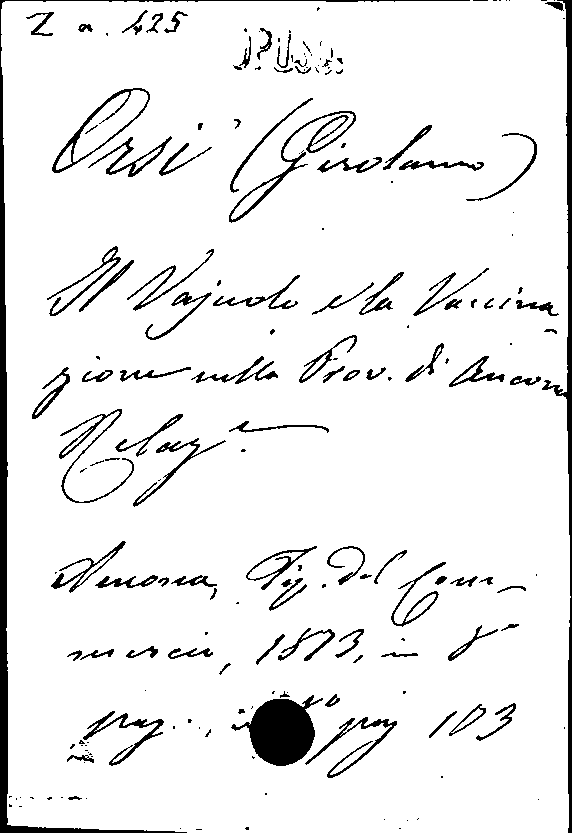 Z a. 425
Orsi (Girolamo)
Il Vajuolo e la Vaccina
zione nella Prov. di Ancona
Relaz.e
Ancona, Tip. del Com-
mercio, 1873, in 8°
pag. pag 103